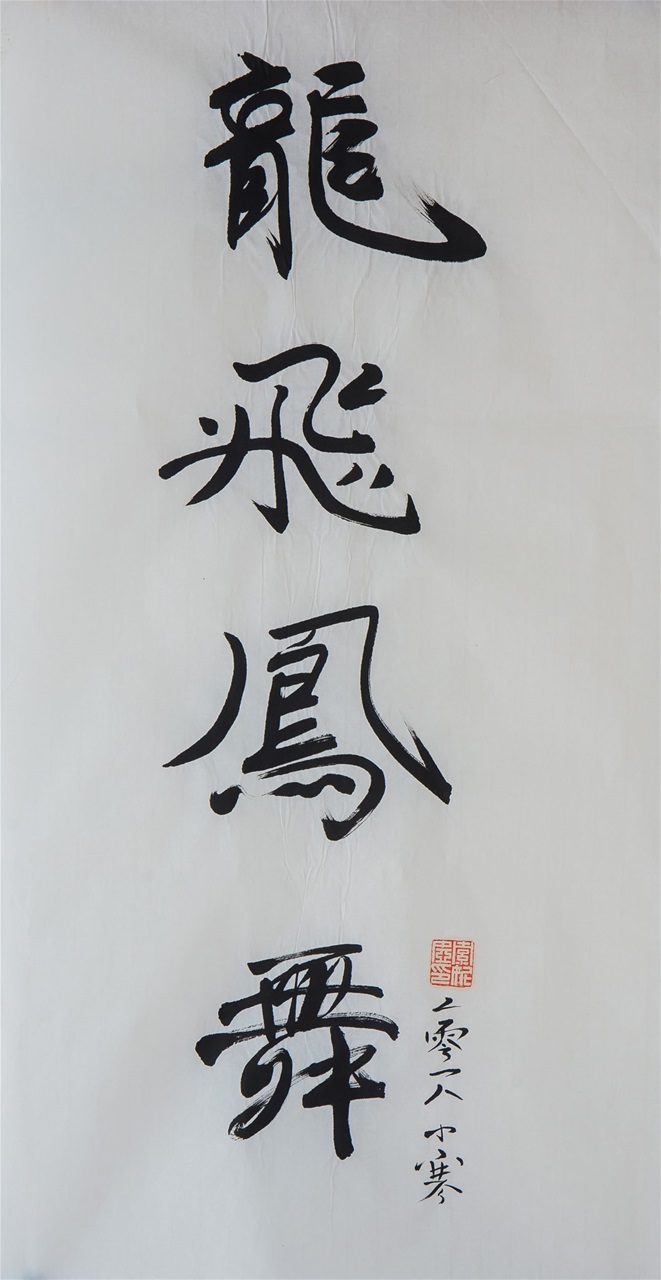 龍飛鳳舞
二零一八小寒